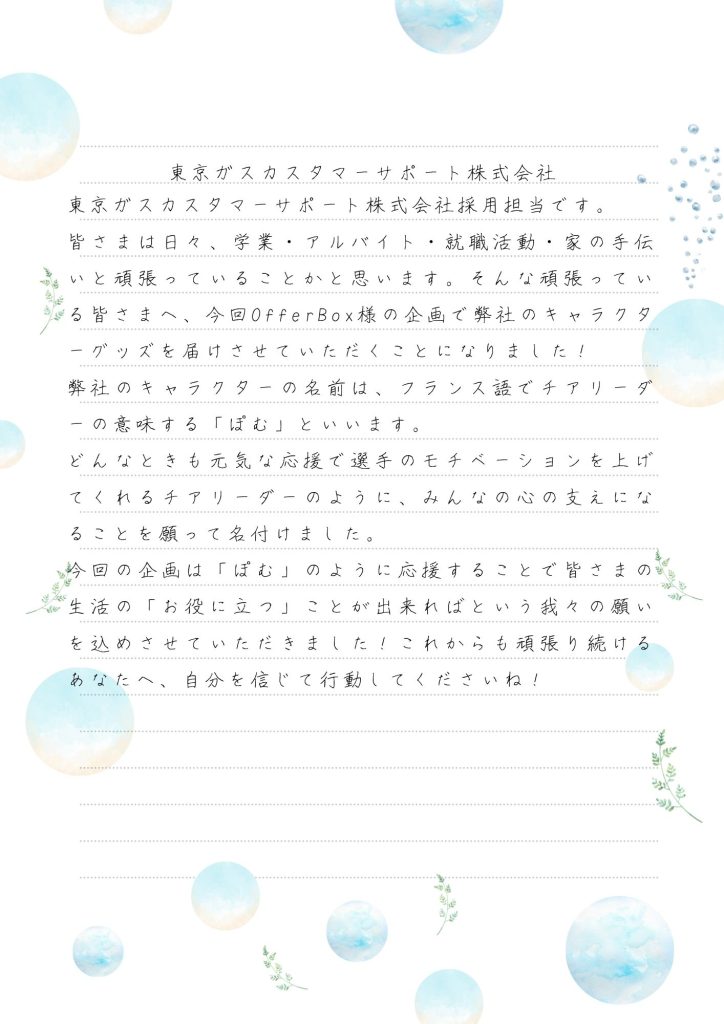 東京ガスカスタマーサポート株式会社
東京ガスカスタマーサポート株式会社採用担当です。
皆さまは日々、学業・アルバイト・就職活動・家の手伝
いと頑張っていることかと思います。そんな頑張ってい
る皆さまへ、今回OfferBox様の企画で弊社のキャラクタ
ーグッズを届けさせていただくことになりました！
弊社のキャラクターの名前は、フランス語でチアリーダ
ーの意味する「ぽむ」といいます。
どんなときも元気な応援で選手のモチベーションを上げ
てくれるチアリーダーのように、みんなの心の支えにな
ることを願って名付けました。
今回の企画は「ぽむ」のように応援することで皆さまの
生活の「お役に立つ」ことが出来ればという我々の願い
を込めさせていただきました！これからも頑張り続ける
あなたへ、自分を信じて行動してくださいね！